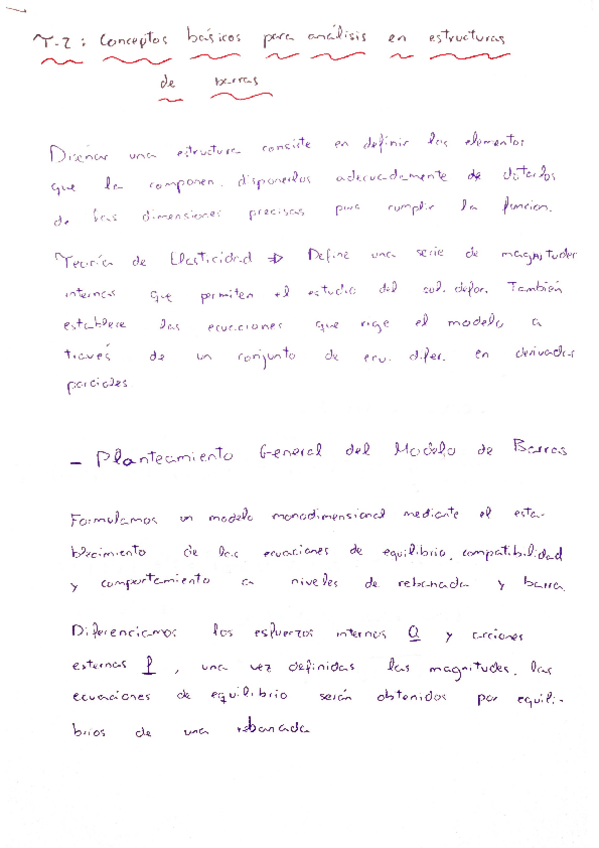 T-2: Conceptos básicos para análisis en estructuras
de barras
Diseñar una estructura consiste en definir los elementos
que la componen, disponerlos adecuadamente de dotarlos
de las dimensiones precisas para cumplir la función.
Teoría de Elasticidad => Define una serie de magnitudes
internas que permiten el estudio del sol. defor. También
establece las ecuaciones que rige el modelo a
través de un conjunto de ecu. difer. en derivadas
parciales
- Planteamiento General del Modelo de Barras
Formulamos un modelo monodimensional mediante el esta-
blecimiento de las ecuaciones de equilibrio, compatibilidad
y comportamiento a niveles de rebanada y barra.
Diferenciamos los esfuerzos internos Q y acciones
externas P, una vez definidas las magnitudes, las
ecuaciones de equilibrio serán obtenidos por equili-
brios de una rebanada